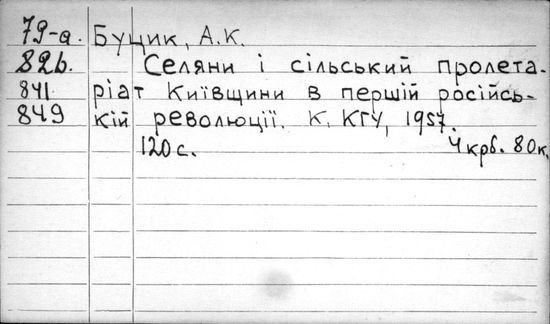 79-а. Буцик, А.К.
82б. Селяни і сільський пролета-
841 ріат Київщини в першій російсь-
849 кій революції. К. КГУ, 1957.
120 с. 4 крб. 80к.